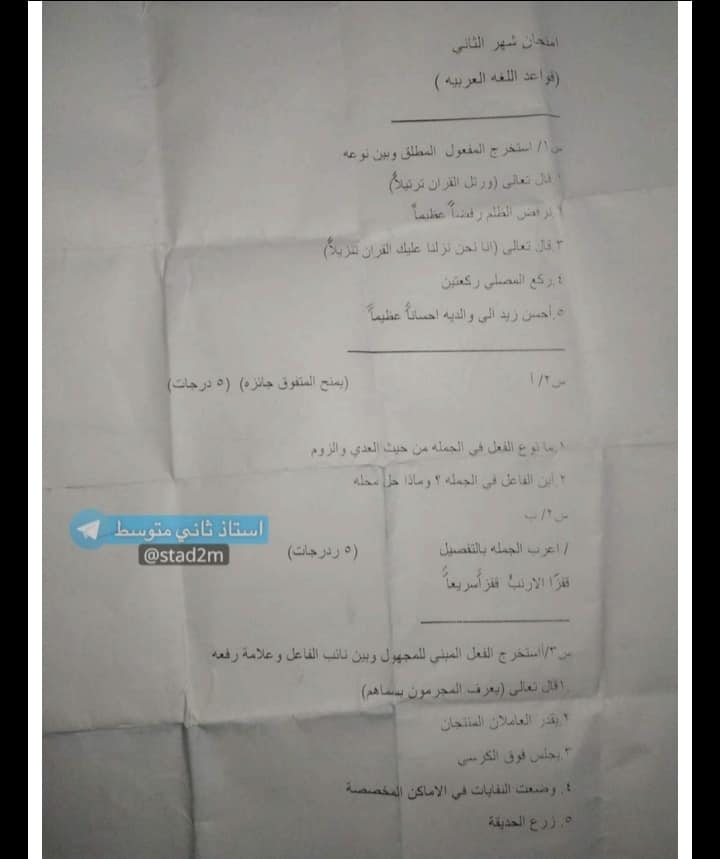 امتحان شهر الثاني
(قواعد اللغه العربيه )
س١/ استخرج المفعول المطلق وبين نوعه
١.قال تعالى (ورتل القران ترتيلاً)
٢.نرفض الظلم رفضاً عظيماً
٣.قال تعالى (انا نحن نزلنا عليك القران تنزيلاً)
٤.ركع المصلي ركعتين
٥.أحسن زيد الى والديه احساناً عظيماً
س٢/ أ (يمنح المتفوق جائزه) (٥ درجات)
١.ما نوع الفعل في الجمله من حيث العدي والزوم
٢.اين الفاعل في الجمله ؟ وماذا حل محله
س٢/ ب
/ اعرب الجمله بالتفصيل (٥ ردرجات)
قفزَا الارنبُ قفزاًسريعاً
س٣/أستخرج الفعل المبني للمجهول وبين نائب الفاعل وعلامة رفعه
١قال تعالى (يعرف المجرمون بسماهم)
٢.يقدر العاملان المنتجان
٣.يجلس فوق الكرسي
٤. وضعت النفايات في الاماكن المخصصة
٥. زرع الحديقة
استاذ ثاني متوسط
@stad2m